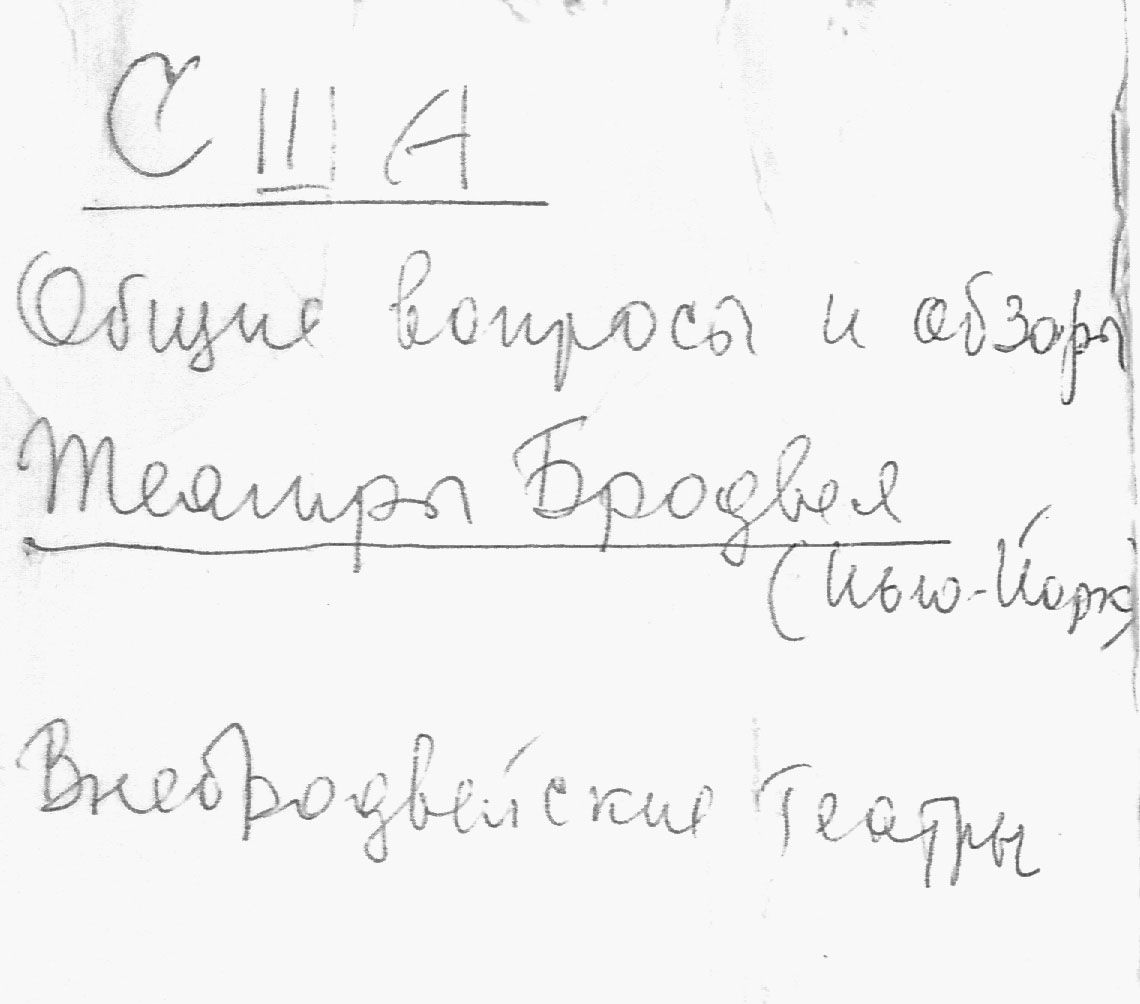 США
Общие вопросы и обзоры
Театры Бродвея
(Нью-Йорк)
Внебродвейские театры